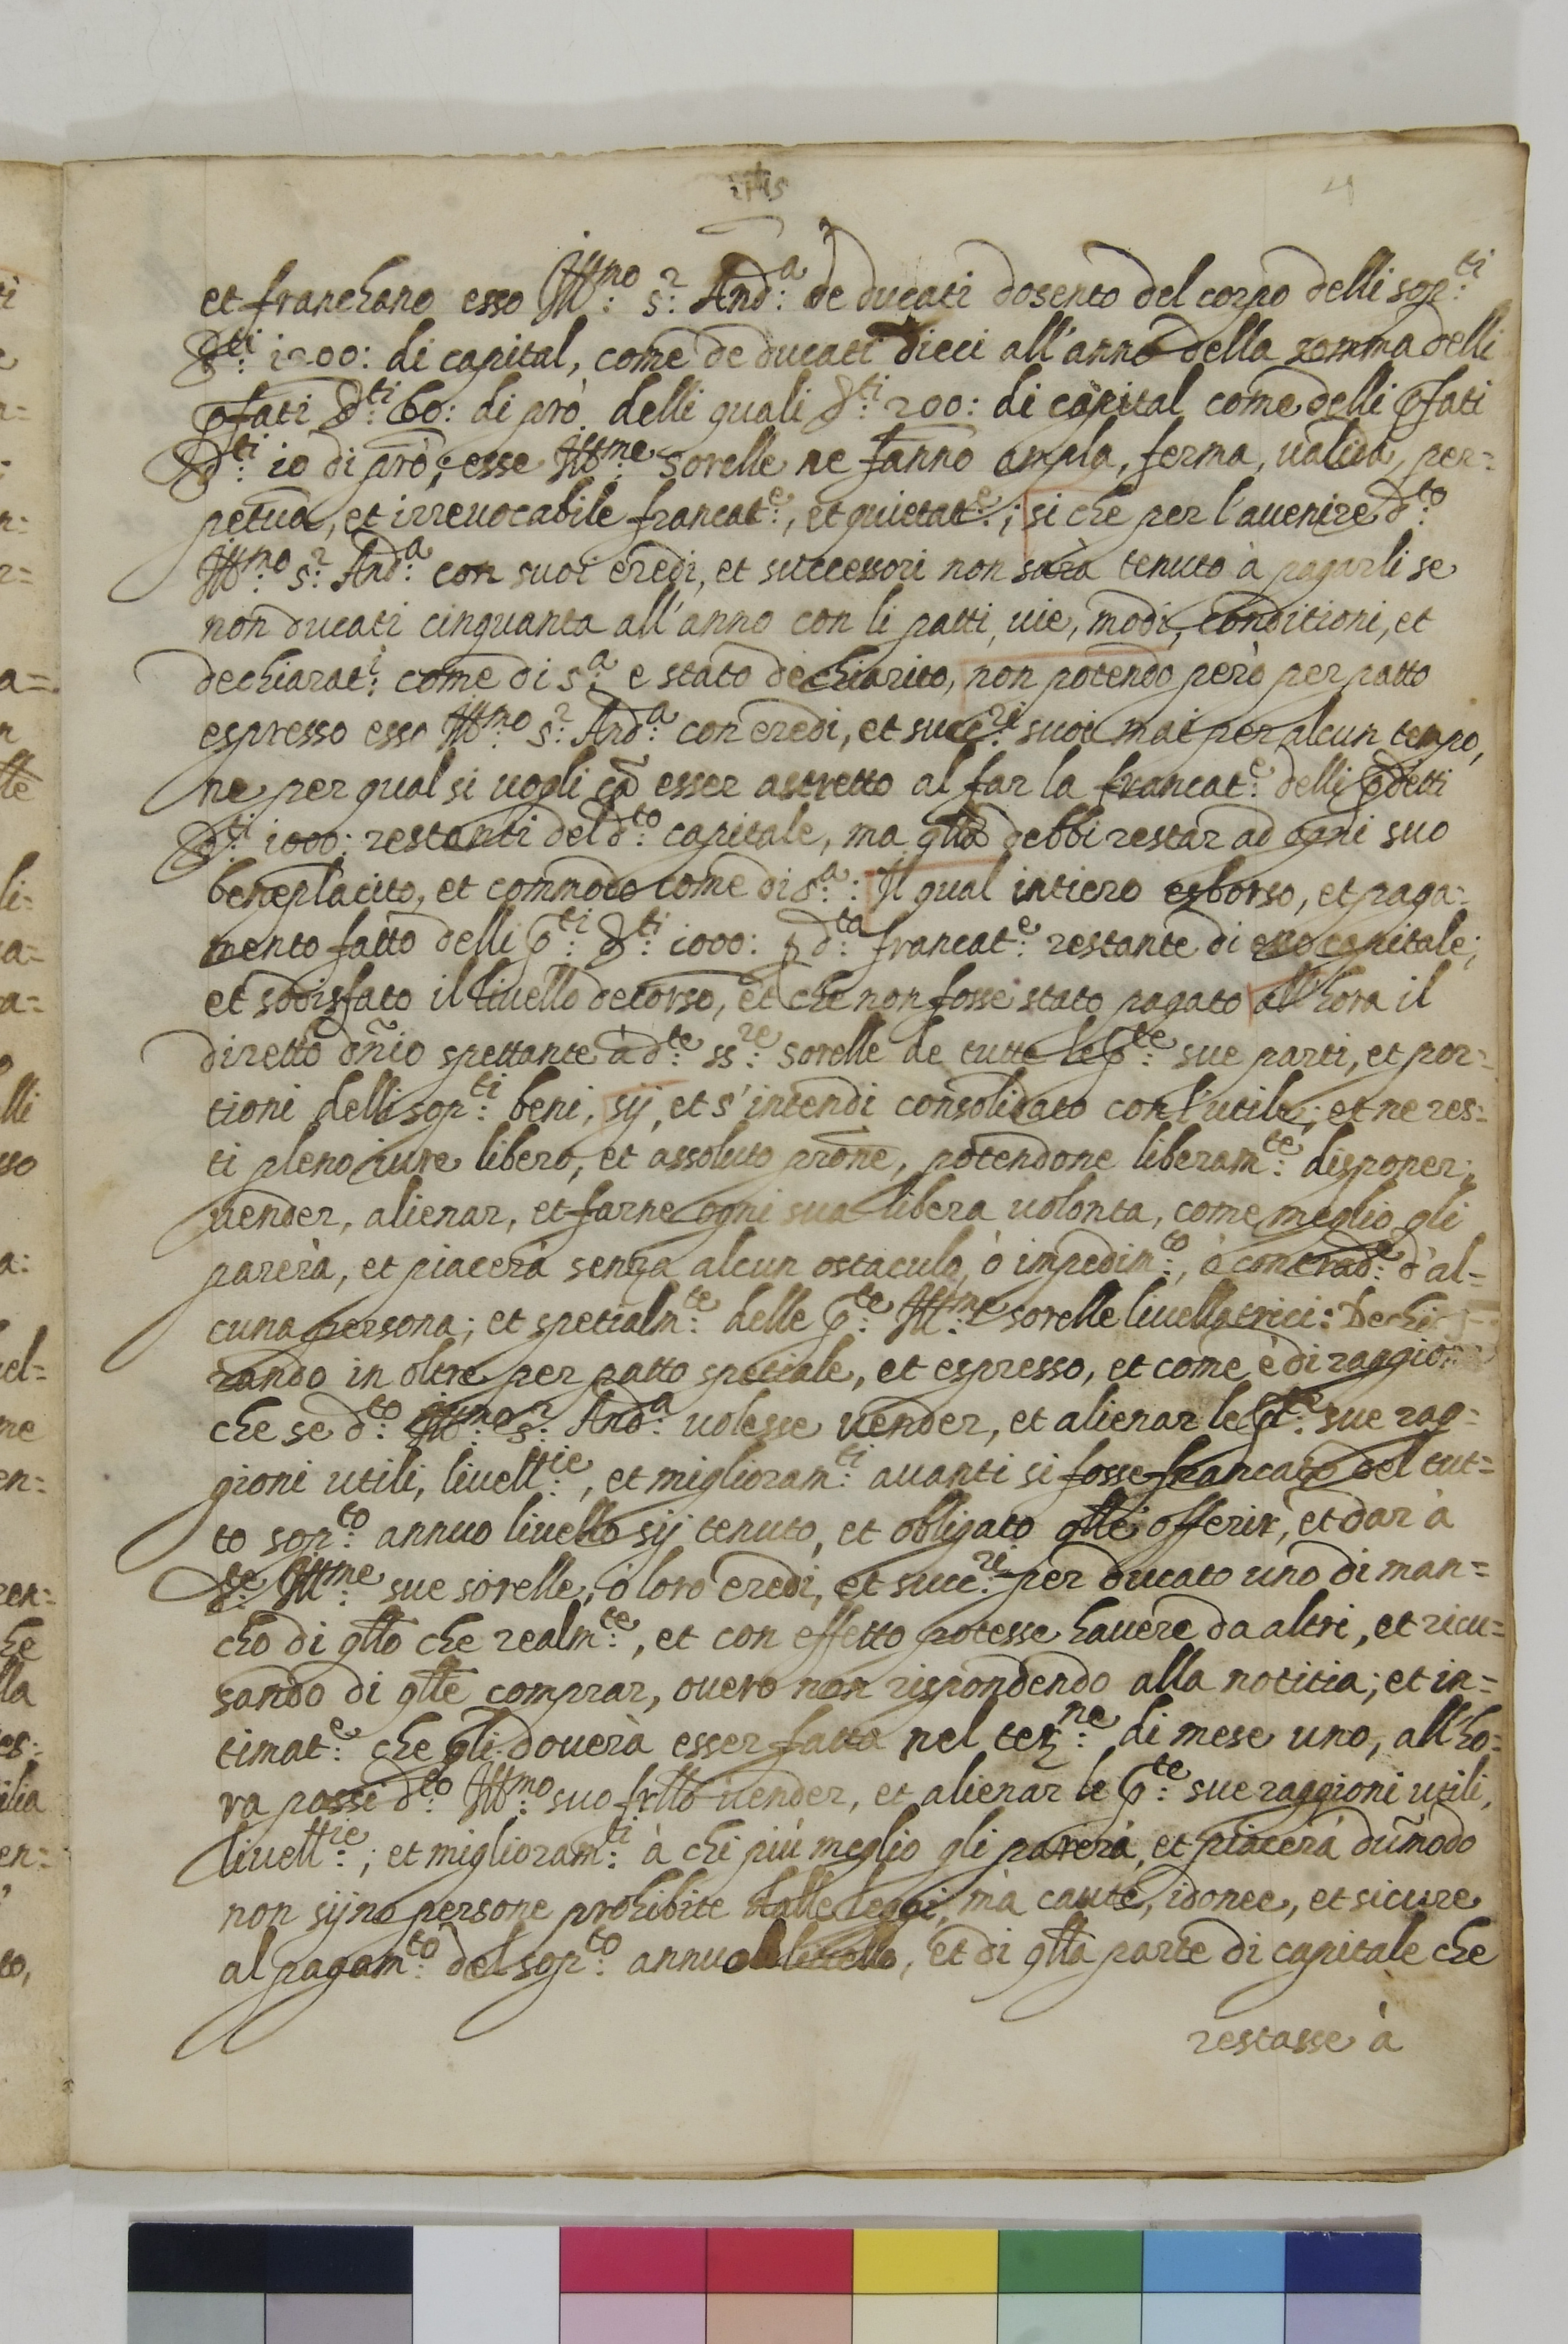 4
et franchano esso Ill:mo s:r And:a de ducati dosento del corpo delli sop:ti
d:ti 1200: di capital, come de ducati dieci all'anno della somma delli
pfati d:ti 60: di prò. delli quali d:ti 200: di capital come delli pfati
d:ti 10 di prò; esse Ill:me sorelle ne fanno ampla, ferma, ualida, per=
petua, et irreuocabile francat:e, et quietat:e; si che per l'auenire d:to
Ill:mo s:r And:a con suoi eredi, et successori non sarà tenuto à pagarli se
non ducati cinquanta all'anno con li patti, uie, modi, conditioni, et
dechiarat:i come di s:a e stato dechiarito, non potendo però per patto
espresso esso Ill:mo s:r And:a con eredi, et succ:ri suoi mai per alcun tempo,
ne per qual si uogli cā esser astretto al far la francat:e delli pdetti
d:ti 1000: restanti del d:to capitale, ma qllo debbi restar ad ogni suo
beneplacito, et commodo come di s:a: Il qual intiero esborso, et paga=
mento fatto delli p:ti d:ti 1000: p d:ta francat:e restante di esso capitale;
et sodisfato il liuello decorso, et che non fosse stato pagato all'hora il
diretto dñio spettante à d:te ss:re sorelle de tutte le p:te sue parti, et por=
tioni delli sop:ti beni, sij, et s'intendi consolidato con l'utile; et ne res=
ti pleno iure libero, et assoluto prone, potendone liberam:te disponer,
uender, alienar, et farne ogni sua libera uolonta, come meglio gli
parerà, et piacerà senza alcun ostaculo, ò impedim:to, ò contrad:e d'al=
cuna persona; et spetialm:te delle p:te Ill:me sorelle liuellatrici: Dechia=
rando in oltre per patto spetiale, et espresso, et come è di raggion
che se d:to Ill:mo s:r And:a uolesse uender, et alienar le p:te sue rag=
gioni utili, liuell:rie, et miglioram:ti auanti si fosse francato del tut=
to sop:to annuo liuello sij tenuto, et obligato qlle offerir, et dar à
d:te Ill:me sue sorelle, ò loro eredi, et succ:ri per ducato uno di man=
cho di qllo che realm:te, et con effetto potesse hauere da altri, et ricu=
sando di qlle comprar, ouero non rispondendo alla notitia; et in=
timat:e che gli douerà esser fatta nel ter:ne di mese uno, all'ho=
ra possi d:to Ill:mo suo frllo uender, et alienar le p:te sue raggioni utili,
liuell:rie; et miglioram:ti à chi più meglio gli parerà, et piacerà dum̃odo
non sijno persone prohibite dalle leggi, mà caute, idonee, et sicure
al pagam:to del sop:to annuo liuello, et di qlla parte di capitale che
restasse à